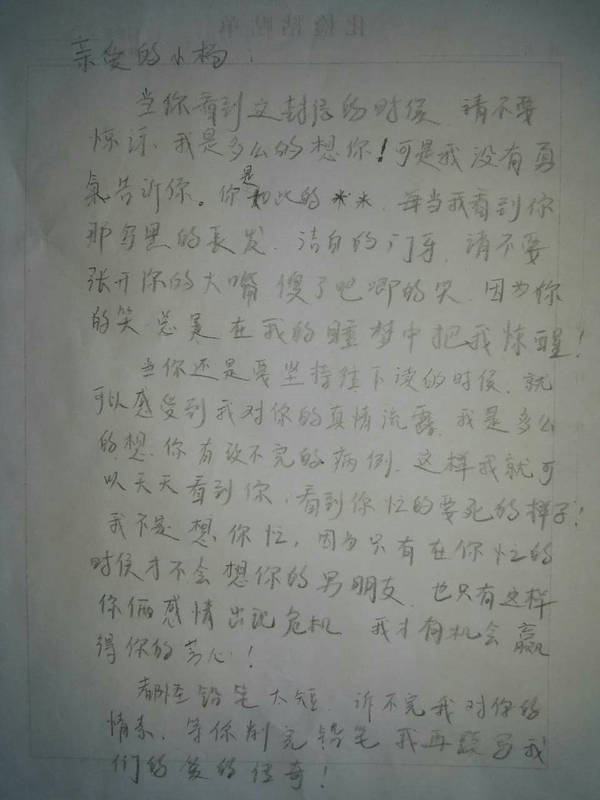 化验粘贴单
亲爱的小杨：
当你看到这封信的时候 请不要
惊讶、我是多么的想你！可是我没有勇
氣告诉你。你是如此的 . 每当我看到你
那乌黑的長发、洁白的门牙、请不要
张开你的大嘴 傻了吧唧的笑、因为你
的笑 总是在我的睡梦中把我惊醒！
当你还是要坚持往下读的时候、就
可以感受到我对你的真情流露、我是多么
的想、你有砍不完的病例、这样我就可
以天天看到你、看到你忙的要死的样子！
我不是想你忙，因为只有在你忙的
时侯才不会想你的男朋友、也只有这样
你俩感情出现危机 我才有机会赢
得你的芳心！
都怪铅笔太短、诉不完我对你的
情素、等你削完铅笔我再题写我
们的爱的传奇！